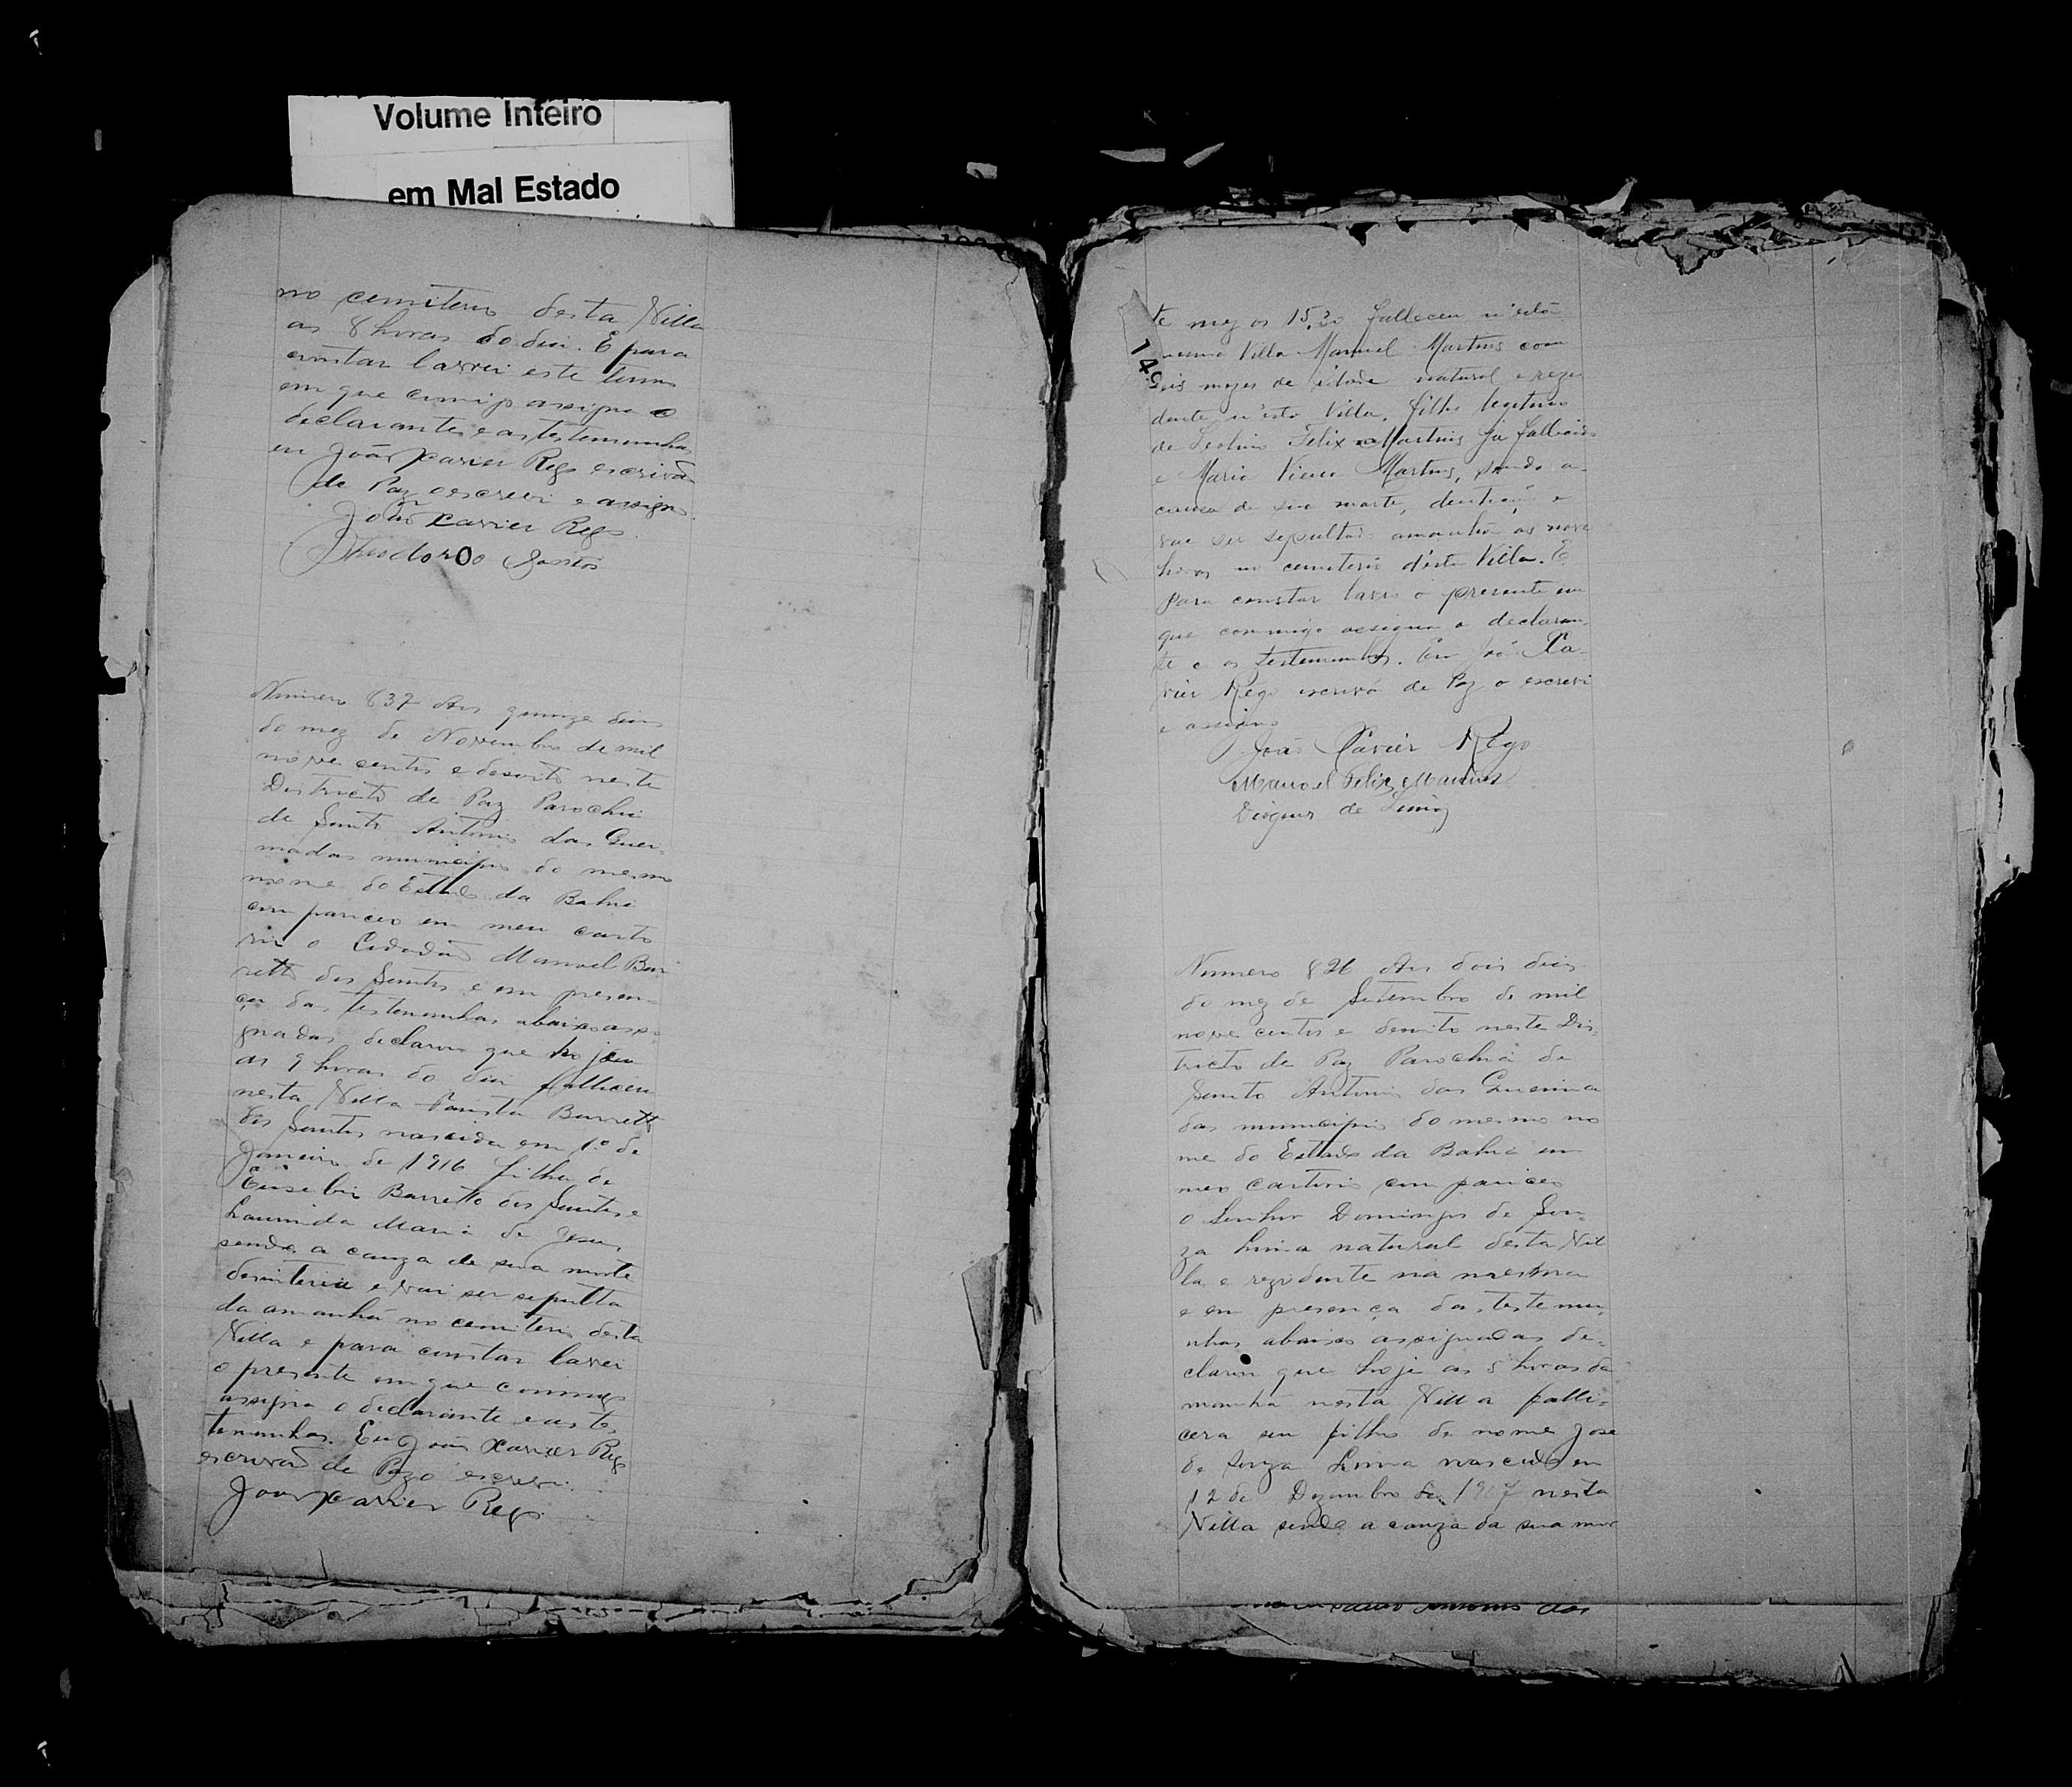 Volume Inteiro
em Mal Estado
no cemiterio desta Villa
as 8 horas do dia. E para
constar lavrei este termo
em que comigo assigna o
declarante e as testemunhas
eu João Xavier Rego escrivão
de Paz o escrevi e assigno.
João Xavier Rego
Theodoro Santos
Numero 837 Aos quinze dias
do mez de Novembro de mil
nove centos e desoito neste
Districto de Paz Parochia
de Santo Antonio das Quei-
madas municipio do mesmo
nome do Estado da Bahia
compareceo em meu carto
rio o Cidadão Manoel Bar
retto dos Santos e em presen-
ça das testemunhas abaixo assi
gnadas declarou que hoje
as 9 horas do dia falleceu
nesta Villa Fausta Barretto
dos Santos nascida em 1º de
Janeiro de 1916 filha de
Eusebio Barretto dos Santos e
Laurinda Maria de Jesus,
sendo a cauza de sua morte
desinteria e vai ser sepulta
da amanhã no cemiterio desta
Villa e para constar lavrei
o presente em que commigo
assigna o declarante e as tes
temunhas. Eu João Xavier Rego
escrivão de Paz o escrevi.
João Xavier Rego
149
te mez as 15,30 falleceu n'esta
mesma Villa Manuel Martins com
seis mezes de idade natural e rezi
dente n'esta Villa, filho legitimo
de Felix Martins já fallecido
e Maria Vieira Martins, sendo a
causa de sua morte, dentição e
vae ser sepultado amanhã as nove
horas no cemeterio d'esta Villa. E
para constar lavro o presente em
que commigo assigna o declaran-
te e as testemunhas. Eu João Xa-
vier Rego escrivão de Paz o escrevi
e assigno
João Xavier Rego
Manoel Felix Martins
de Lima
Numero 826 Aos dois dias
do mez de Setembro de mil
nove centos e desoito neste Dis-
tricto de Paz Parochia de
Santo Antonio das Queima
das municipio do mesmo no
me do Estado da Bahia em
meo cartorio compareceo
o Senhor Domingos de Sou-
za Lima natural desta Vil
la e rezidente na mesma
e em presença das testemu-
nhas abaixo assignadas de-
clarou que hoje as 5 horas da
manhã nesta Villa falle-
cera seu filho de nome José
de Souza Lima nascido em
12 de Dezembro de 1917 nesta
Villa sendo a cauza da sua mor
Antonio das